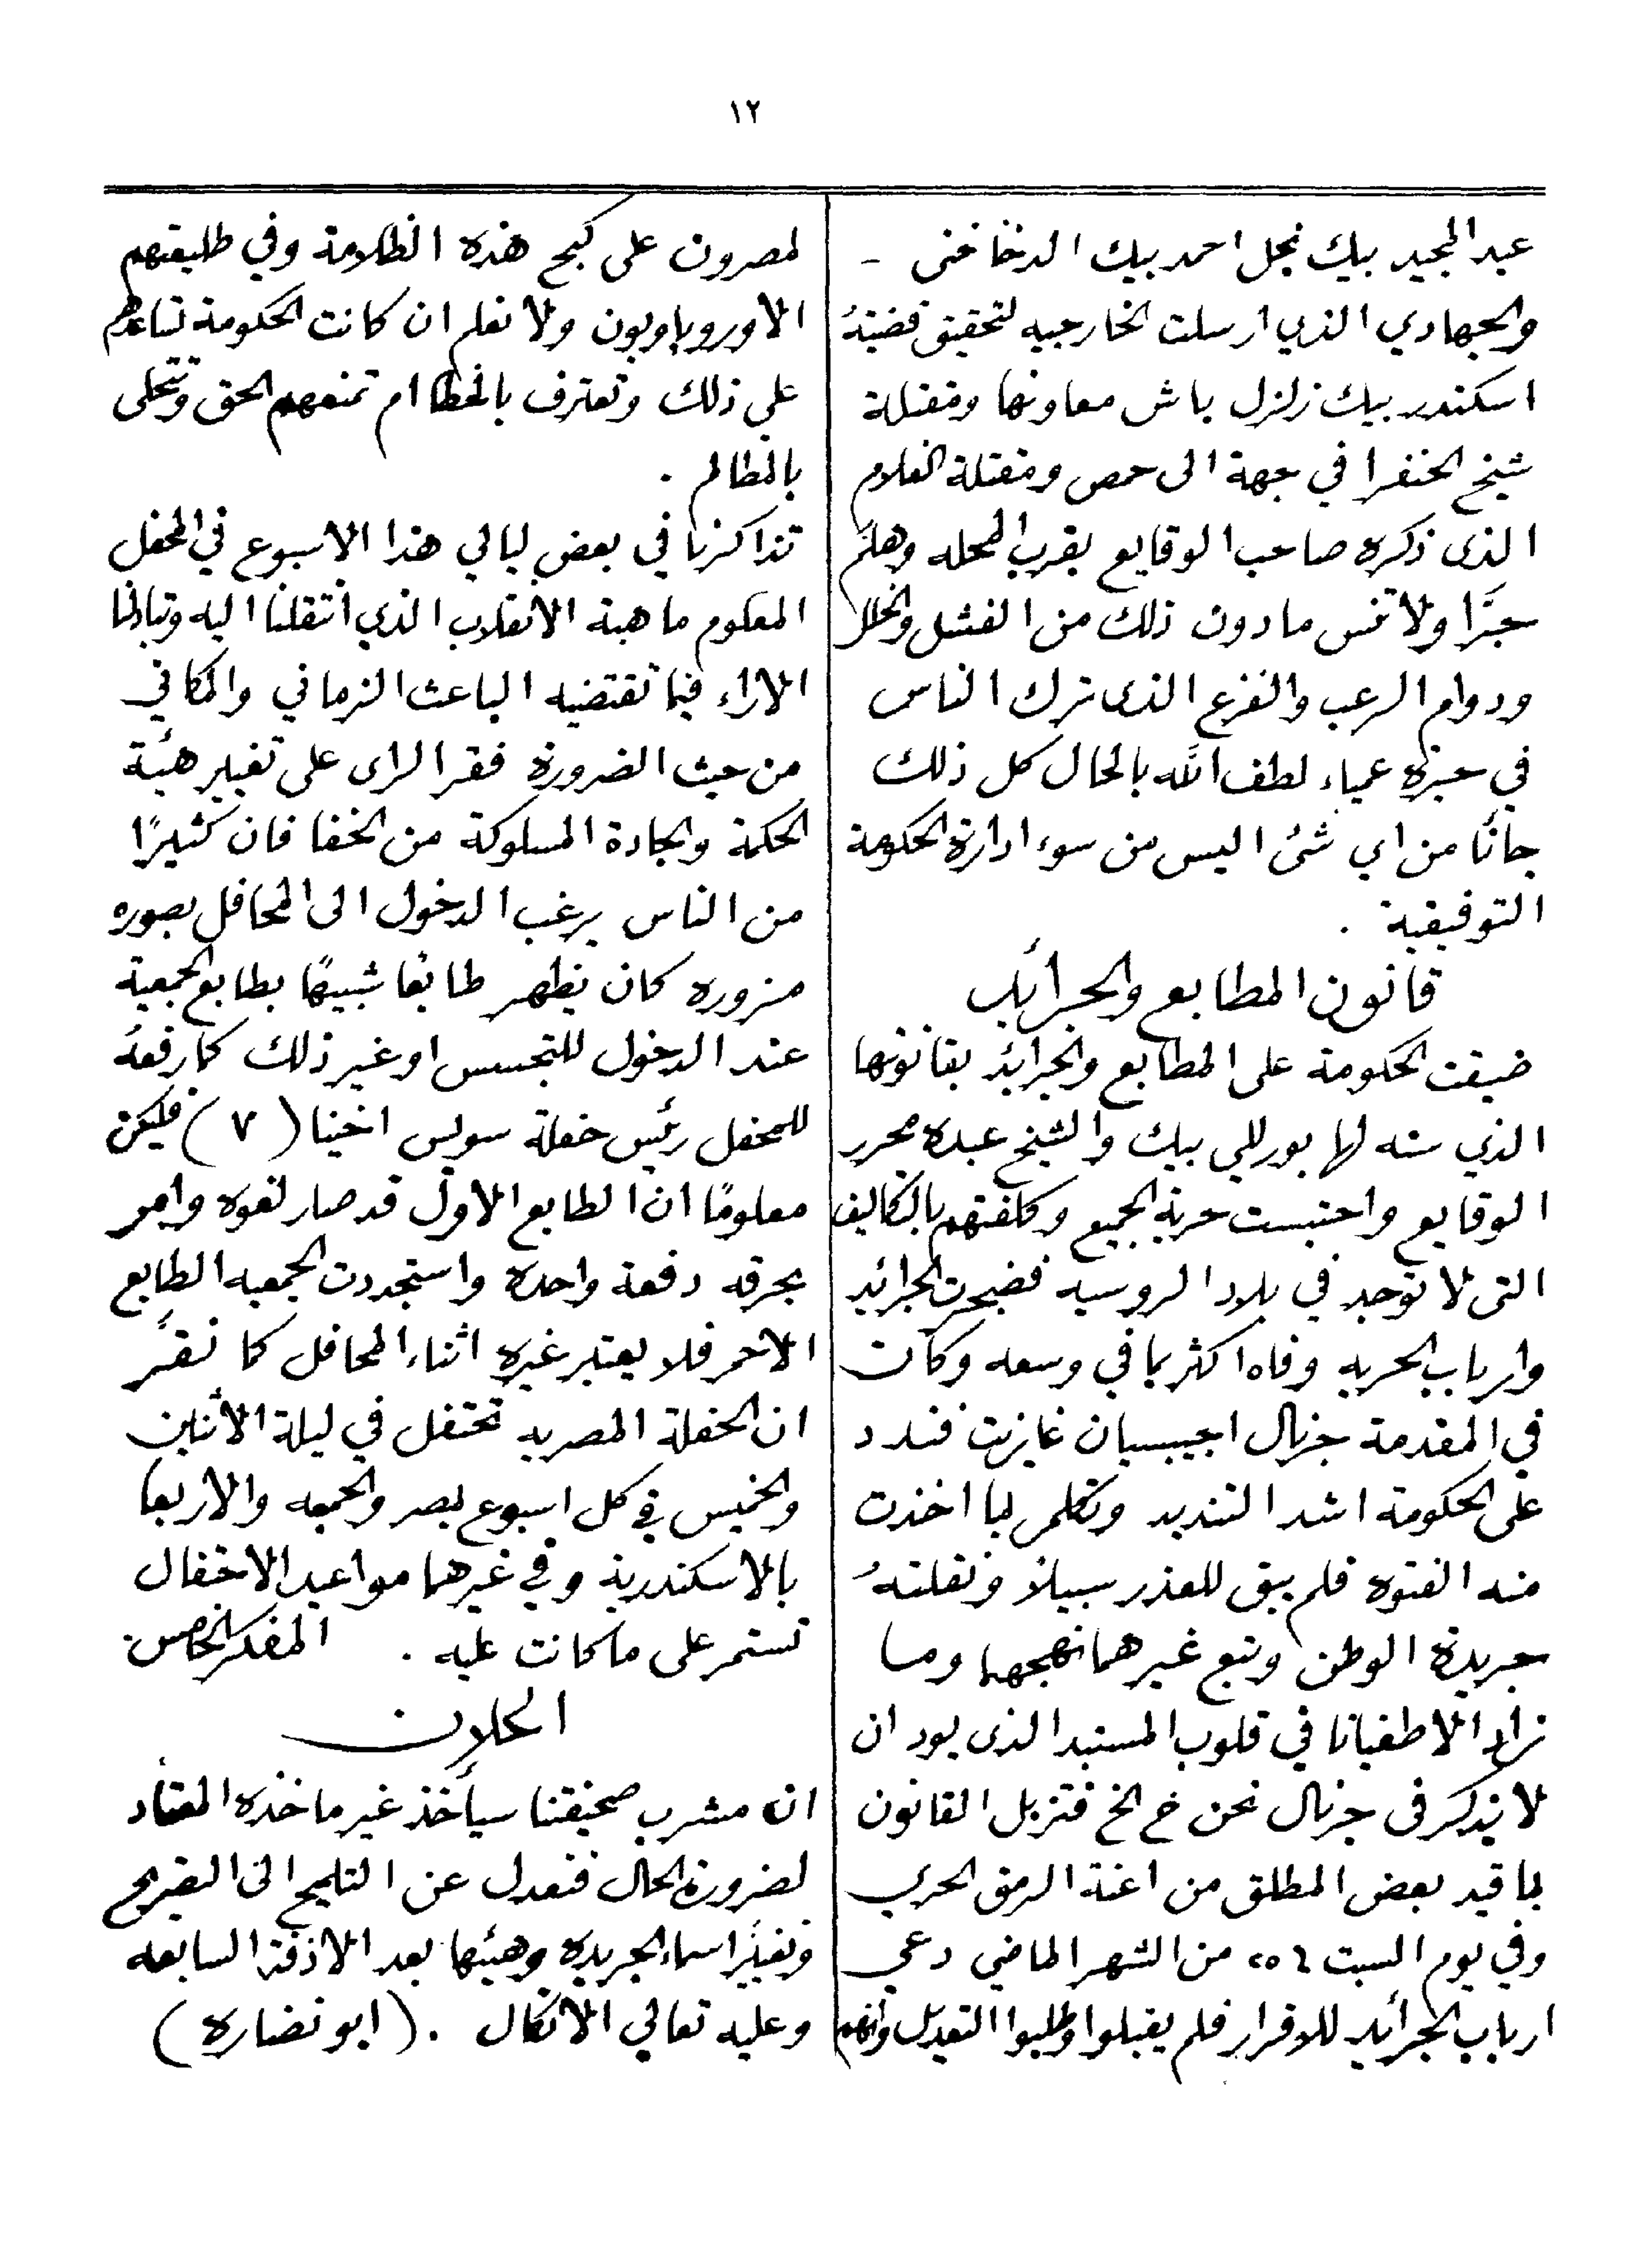 ١٢
عبد المجيد بيك نجل احمد بيك الدخاخنى -
والجهادي الذي ارسلت الخارجيه لتحقيق قضيتهُ
اسكندر بيك زلزل باش معاونها ومقتلة
شيخ الخفرا في جهة الى حمص ومقتلة الغلام
الذى ذكره صاحب الوقايع بقرب المحله وهلمَّ
جرًّا ولا تنس مادون ذلك من الفشل والخلل
ودوام الرعب والفزع الذى ترك الناس
في حيرة عمياء لطف الله بالحال كل ذلك
جانًا من اي شئ اليس من سوء ادارة الحكومة
التوفيقية .
قانون المطابع والجرائد
ضيقت الحكومة على المطابع والجرائد بقانونها
الذي سنه لها بورللي بيك والشيخ عبده محرر
الوقايع واحتبست حرية الجميع وكلفتهم بالتكاليف
التى لا توجد في بلاد الروسيه فضجرت الجرائد
وارباب الحريه وفاه اكثر بما في وسعه وكانت
في المقدمة جرنال اجيبسيان غازيت فندد
على الحكومة اشد التنديد وتكلم لما اخذت
منه الفتوه فلم يبق للعذر سبيلاً ونقلتهُ
جريدة الوطن وتبع غيرهما نهجهما وما
زاد الا طغيانا في قلوب المستبد الذى يود ان
لا يذكر فى جرنال نحن خ الخ فتزبل القانون
لما قيد بعض المطلق من اعنة الرمق الحري
وفي يوم السبت ٢٥٤ من الشهر الماضي دعي
ارباب الجرائد للاقرار فلم يقبلوا وطلبوا التعديل وانهم
لمصرون على كبح هذه الظلامة وفي طليعتهم
الاوروباويون ولا نعلم ان كانت الحكومة تساعدهم
على ذلك وتعترف بالخطا ام تمنعهم الحق وتتحلى
بالمظالم .
تذاكرنا في بعض ليالي هذا الاسبوع في المحفل
المعلوم ماهية الانقلاب الذي انتقلنا اليه وتبادلنا
الاراء فيما تقتضيه الباعث الزماني والمكاني
من حيث الضرورة فقر الراى على تغيير هئية
الحكمة والجادة المسلوكة من الخفا فان كثيرًا
من الناس يرغب الدخول الى المحافل بصوره
مزوره كان يظهر طابعًا شبيهًا بطابع الجمعية
عند الدخول للتجسس او غير ذلك كما رفعهُ
للمحفل رئيس حفلة سويس اخينا (٧) فليكن
معلومًا ان الطابع الاول قد صار لغوه وامر
بحرقه دفعة واحدة واستجددت الجمعيه الطابع
الاحمر فلا يعتبر غيره اثناء المحافل كما تقرَّر
ان الحفلة المصريه تحتفل في ليلة الاثنين
والخميس في كل اسبوع بمصر والجمعه والاربعا
بالاسكندرية وفي غيرهما مواعيد الاحتفال
تستمر على ما كانت عليه . المفكر الخامس
اعلان
ان مشرب صحيفتنا سيأخذ غير ماخذه المعتاد
لضرورة الحال فنعدل عن التلميح الى التصريح
ونغيّر اسماء الجريده وهيئها بعد الازفة السابعه
وعليه تعالي الاتكال . (ابو نضاره)